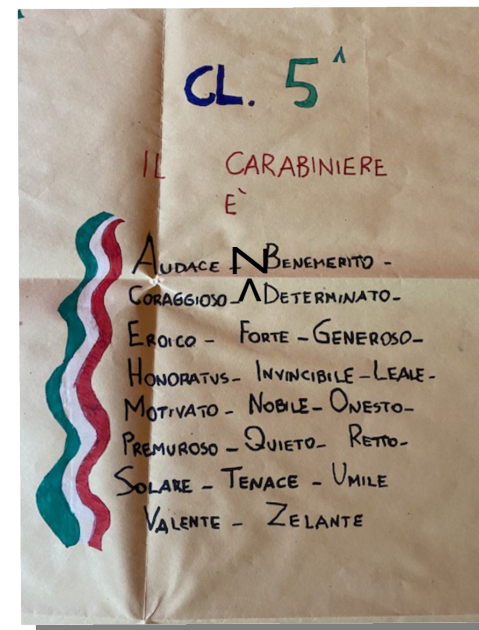 CL. 5^
IL CARABINIERE
È
AUDACE - N BENEMERITO -
CORAGGIOSO - Λ DETERMINATO -
EROICO - FORTE - GENEROSO -
HONORATUS - INVINCIBILE - LEALE -
MOTIVATO - NOBILE - ONESTO -
PREMUROSO - QUIETO - RETTO -
SOLARE - TENACE - UMILE
VALENTE - ZELANTE